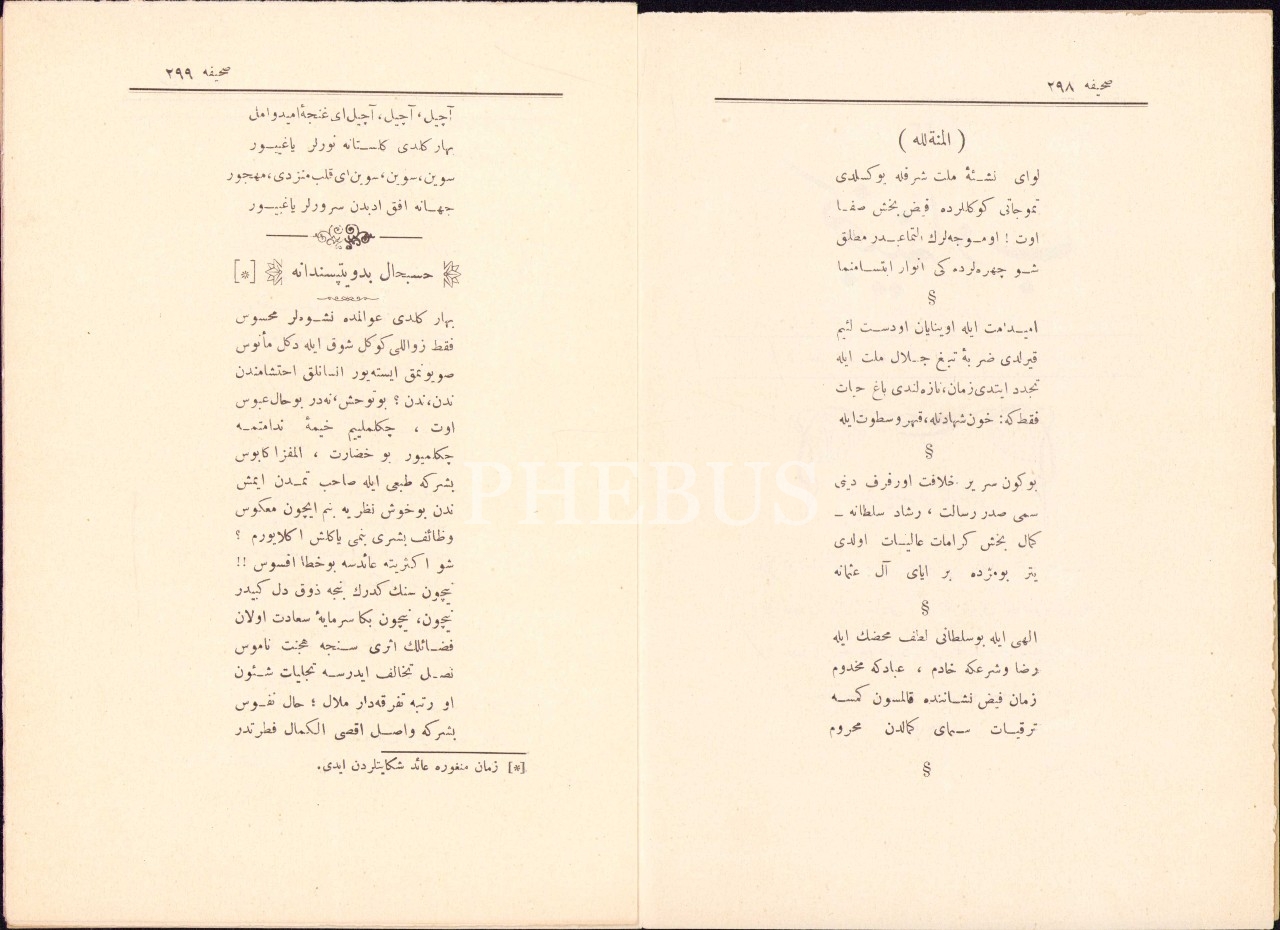 صحیفه ٢٩٨
( المنة لله )
لوای نشئهٔ ملت شرفله یوکسلدی
تموجاتی کوکللرده فیض بخش صفا
اوت ! اوموجه‌لرك التماعیدر مطلق
شو چهره‌لرده کی انوار ابتسامنما
§
امید امت ایله اوینایان اودست لئیم
قیرلدی ضربهٔ تیغ جلال ملت ایله
تجدد ایتدی زمان، تازه‌لندی باغ حیات
فقط که: خون شهادتله، قهر وسطوت ایله
§
بوکون سریر خلافت اورفرف دینی
سمی صدر رسالت ، رشاد سلطانه ـ
کمال بخش کرامات عالیات اولدی
یتر بومژده برایای آل عثمانه
§
الهی ایله بوسلطانی لطف محضك ایله
رضا وشرعکه خادم ، عبادکه مخدوم
زمان فیض نشاننده قالمسون کمسه
ترقیات سمای کمالدن محروم
§
صحیفه ٢٩٩
آچیل، آچیل، آچیل ای غنجهٔ امیدواملی
بهار کلدی کلستانه نورلر یاغییور
سوین، سوین، سوین ای قلب منزوی، مهجور
جهانه افق ادبدن سرورلر یاغییور
حسبحال بدویتپسندانه [*]
بهار کلدی عوالمده نشوه‌لر محسوس
فقط زواللی کوکل شوق ایله دکل مأنوس
صویونمق ایسته‌یور انسانلق احتشامندن
ندن، ندن ؟ بوتوحش، نه‌در بوحال عبوس
اوت ، چکلملییم خیمهٔ ندامتمه
چکلمیور بو خضارت ، المفزا کابوس
بشرکه طبعی ایله صاحب تمدن ایمش
ندن بوخوش نظریه بنم ایچون معکوس
وظائف بشری بنمی یاکلش اکلایورم ؟
شو اکثریته عائدسه بوخطا افسوس !!
نیچون سنك کدرك بنجه ذوق دل کبیدر
نیچون، نیچون بکا سرمایهٔ سعادت اولان
فضائلك اثری سنجه هجنت ناموس
نصل تخالف ایدرسه تجلیات شئون
او رتبه تفرقه‌دار ملال ؛ حال نفوس
بشرکه واصل اقصی الکمال فطرتدر
[*] زمان منفوره عائد شکایتلردن ایدی.
PHEBUS